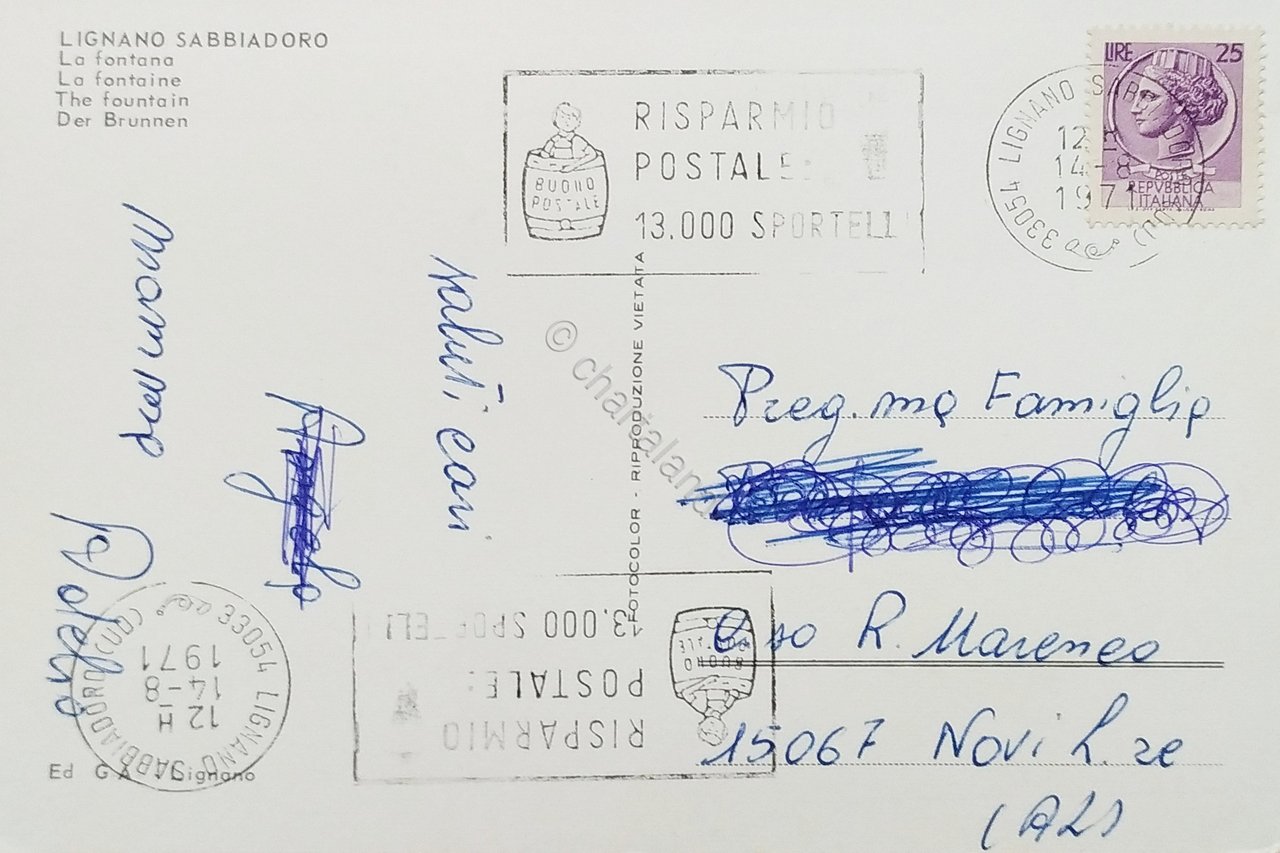 LIGNANO SABBIADORO
La fontana
La fontaine
The fountain
Der Brunnen
RISPARMIO
POSTALE:
13.000 SPORTELLI
BUONO
POSTALE
LIRE 25
POSTE
REPVBBLICA
ITALIANA
33054 LIGNANO SABBIADORO (UD)
12 H
14-8
1971
saluti cari
FOTOCOLOR - RIPRODUZIONE VIETATA
© chartaland
Preg.ma Famiglia
C.so R. Marenco
15067 Novi L.re
(AL)
RISPARMIO
POSTALE:
13.000 SPORTELLI
BUONO
POSTALE
33054 LIGNANO SABBIADORO (UD)
12 H
14-8
1971
Ed G.A. Lignano